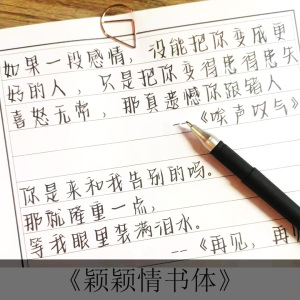 如果一段感情，没能把你变成更
好的人，只是把你变得患得患失
喜怒无常，那真遗憾你跟错人
《唉声叹气》
你是来和我告别的吗。
那就隆重一点，
等我眼里装满泪水。
--《再见，再
《颖颖情书体》